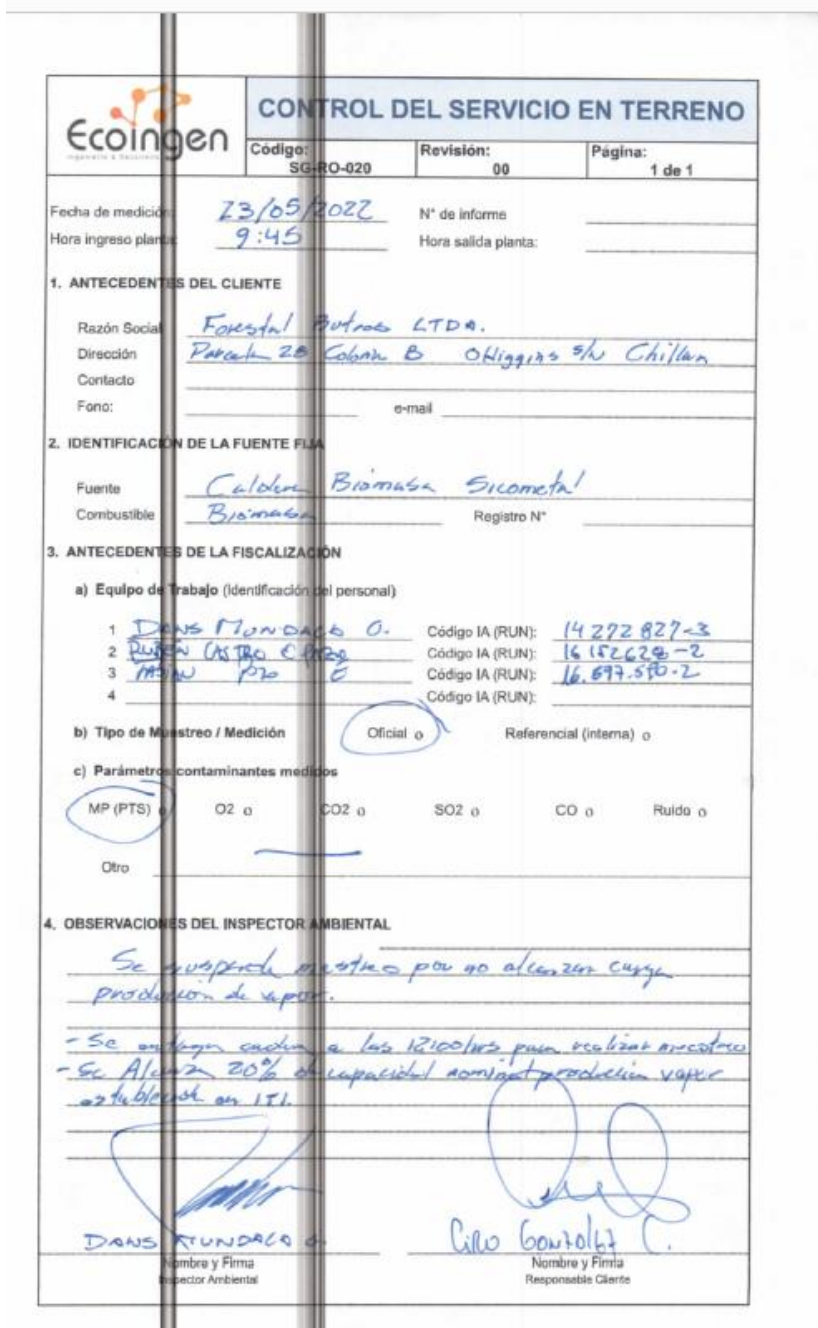 Ecoingen
CONTROL DEL SERVICIO EN TERRENO
Código: SG-RO-020
Revisión: 00
Página: 1 de 1
Fecha de medición: 23/05/2022 N° de informe
Hora ingreso planta: 9:45 Hora salida planta:
1. ANTECEDENTES DEL CLIENTE
Razón Social Forestal Butras LTDA.
Dirección Parcela 28 Colonia B OHiggins s/n Chillan
Contacto
Fono: e-mail
2. IDENTIFICACIÓN DE LA FUENTE FIJA
Fuente Caldera Biomasa Sicometal
Combustible Biomasa Registro N°
3. ANTECEDENTES DE LA FISCALIZACIÓN
a) Equipo de Trabajo (Identificación del personal)
1 DANS MUNDACA O. Código IA (RUN): 14 272 827-3
2 RUBEN CASTRO Código IA (RUN): 16 152628-2
3 Código IA (RUN):
4 Código IA (RUN):
b) Tipo de Muestreo / Medición Oficial o Referencial (interna) o
c) Parámetros contaminantes medidos
MP (PTS) o O2 o CO2 o SO2 o CO o Ruido o
Otro
4. OBSERVACIONES DEL INSPECTOR AMBIENTAL
Se suspende muestreo por no alcanzar carga
producción de vapor.
- Se entrega a las 12:00hrs para realizar muestreo
- Se Alcanza 20% de capacidad nominal producción vapor
establecida en ITI.
DANS MUNDACA O. CIRO GONZALEZ C.
Nombre y Firma Nombre y Firma
Inspector Ambiental Responsable Cliente